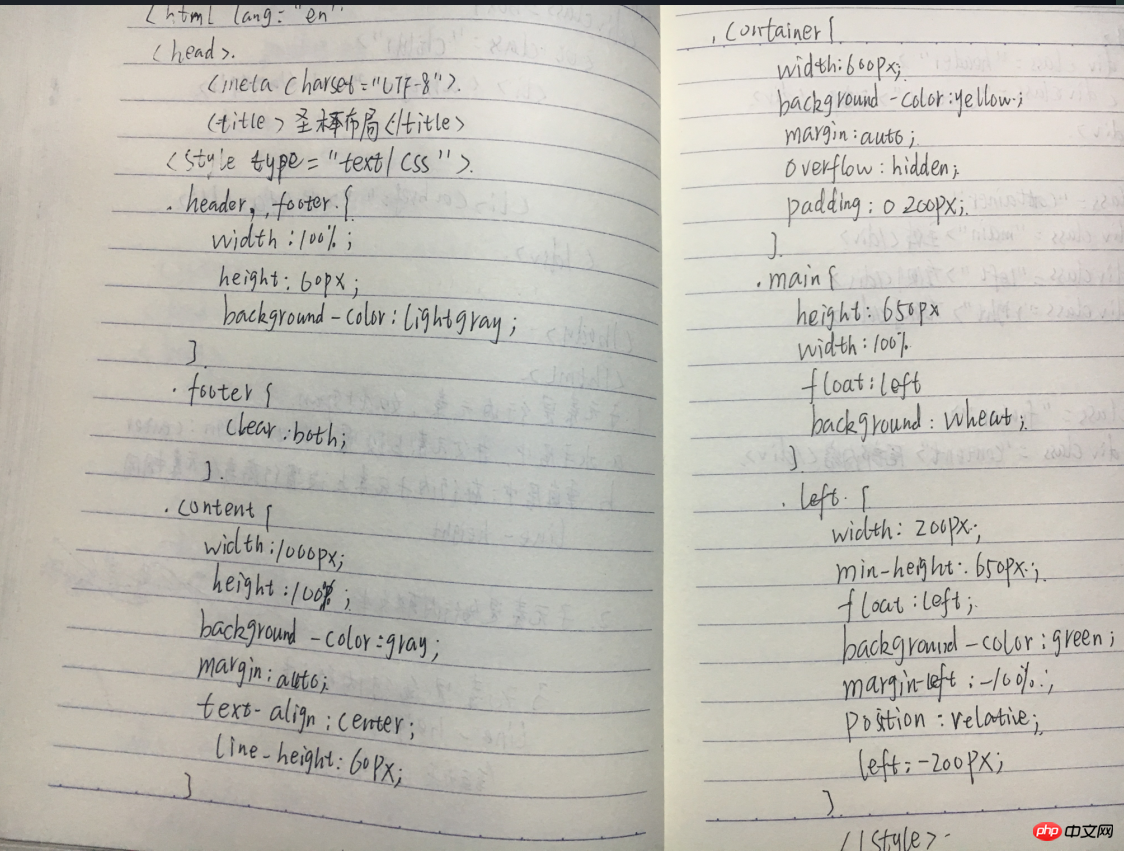 <html lang="en"
<head>.
<meta charset="UTF-8">.
<title>圣杯布局</title>
<style type="text/css">.
.header, .footer {
width:100%;
height:60px;
background-color:lightgray;
}
.footer {
clear:both;
}.
.content {
width:1000px;
height:100%;
background-color:gray;
margin:auto;
text-align:center;
line-height:60px;
}
.container{
width:600px;
background-color:yellow;
margin:auto;
overflow:hidden;
padding:0 200px;
}.
.main{
height:650px
width:100%
float:left
background:wheat;
}
.left {
width:200px;
min-height:650px;
float:left;
background-color:green;
margin-left:-100%;
position:relative;
left:-200px;
}
</style>
php 中文网